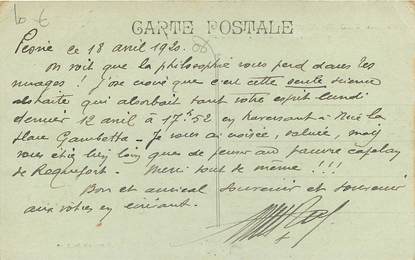 CARTE POSTALE
ce 18 avril 1920.
On voit que la philosophie vous perd dans les
nuages ! J'ose croire que c'est cette seule science
abstraite qui absorbait tout votre esprit lundi
dernier 12 avril à 17h52 en traversant à Nice la
place Gambetta - Je vous ai croisée, saluée, mais
vous étiez bien loin que de penser au pauvre
de Roquefort. Merci tout de même !!!
Bon et amical souvenir et souvenir
aux vôtres en écrivant.